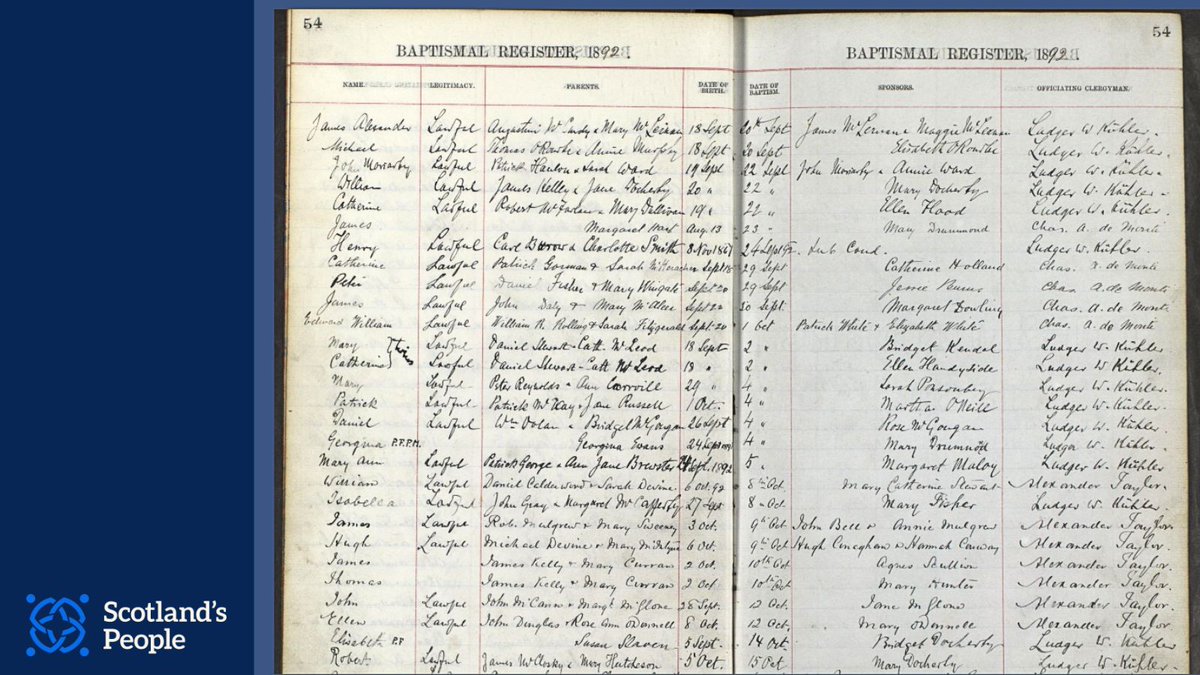 54
54
BAPTISMAL REGISTER, 1892.
BAPTISMAL REGISTER, 1892.
NAME. LEGITIMACY. PARENTS. DATE OF BIRTH. DATE OF BAPTISM. SPONSORS. OFFICIATING CLERGYMAN.
James Alexander Lawful & Mary 18 Sept 20th Sept James & Maggie Ludger W. Kühler.
Michael Lawful Thomas O'Rourke & Annie Murphy 18 Sept 20 Sept Elizabeth O'Rourke Ludger W. Kühler.
John Moriarby Lawful Patrick Hanlon & Sarah Ward 19 Sept 22 Sept John Moriarby & Annie Ward Ludger W. Kühler.
William Lawful James Kelly & Jane Docherby 20 " 22 " Mary Docherby Ludger W. Kühler
Catherine Lawful Robert & Mary Sullivan 19 " 22 " Ellen Hood Ludger W. Kühler.
James Margaret Aug. 13 23 " Mary Drummond Chas. A. de Monti
Henry Lawful Carl & Charlotte Smith 8 Nov 1867 24 Sept 92 Sub Cond. Ludger W. Kühler.
Catherine Lawful Patrick Gorman & Sarah Sept 18 29 Sept Catherine Holland Chas. A. de Monti
Peter Lawful Daniel Fisher & Mary Sept 20 29 Sept Jessie Burns Chas A. de Monti
James Lawful John Daly & Mary McAlee Sept 22 30 Sept. Margaret Dowling Chas. A. de Monti
Edward William Lawful William R. Rolling & Sarah Fitzgerald Sept. 20 1 Oct Patrick White & Elizabeth White Chas. A. de Monti
Mary Twins Lawful Daniel Stewart & Cath. McLeod 18 Sept 2 " Bridget Kendal Ludger W. Kühler.
Catherine Lawful Daniel Stewart & Cath McLeod 18 " 2 " Ellen Handyside Ludger W. Kühler.
Mary Lawful Peter Reynolds & Ann 29 " 4 " Sarah Ponsonby Ludger W. Kühler.
Patrick Lawful Patrick McKay & Jane Russell 1 Oct. 4 " Martha O'Neill Ludger W. Kühler.
Daniel Lawful Wm Dolan & Bridget McGorgan 26 Sept 4 " Rose McGougan Ludger W. Kühler.
Georgina P.P.P.M. Georgina Evans 24 Sept 4 " Mary Drummond Ludger W. Kühler.
Mary Ann Lawful Patrick George & Ann Jane Brewster Sept. 1892 5 " Margaret Maloy Ludger W. Kühler
William Lawful Daniel Calderwood & Sarah Devine 6 Oct. 92 8th Oct Mary Catherine Stewart Alexander Taylor.
Isabella Lawful John Gray & Margaret McCafferby 27 Sept 8 Oct Mary Fisher Ludger W. Kühler.
James Lawful Rob. Mulgrew & Mary Sweeney 3 Oct. 9th Oct John Bell & Annie Mulgrew Alexander Taylor.
Hugh Lawful Michael Devine & Mary McIntyre 6 Oct. 9th Oct Hugh Conaghan & Hannah Alexander Taylor.
James James Kelly & Mary Curran 2 Oct. 10th Oct Agnes Scullion Alexander Taylor.
Thomas James Kelly & Mary Curran 2 Oct. 10th Oct Mary Hunter Alexander Taylor.
John Lawful John McCann & Margt McGlone 28 Sept. 12 Oct. Jane McGlone Alexander Taylor.
Ellen Lawful John Douglas & Rose Ann O'Donnell 8 Oct. 12 Oct. Mary O'Donnell Alexander Taylor.
Elisabeth P.P. Susan Slaven 5 Sept. 14 Oct. Bridget Docherby Ludger W. Kühler
Robert Lawful James McClosky & Mary Hutcheson 5 Oct. 15 Oct Mary Docherby Ludger W. Kühler.
Scotland's
People